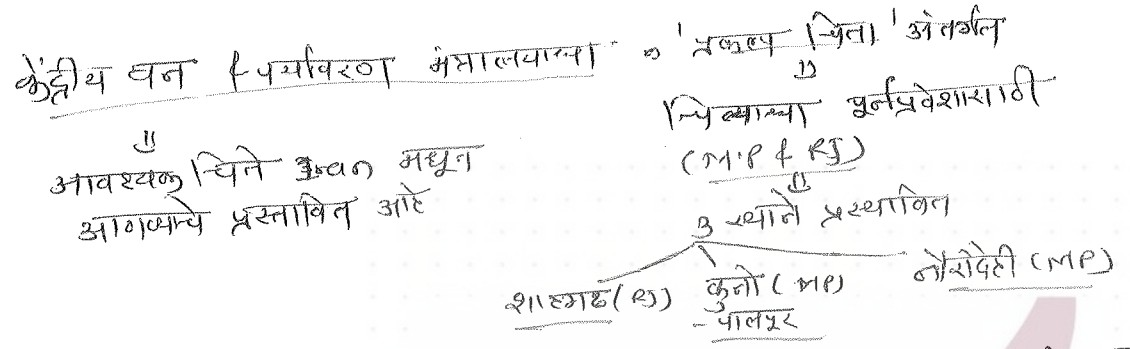 केंद्रीय वन & पर्यावरण मंत्रालयाच्या 'प्रकल्प चित्ता' अंतर्गत
चित्याच्या पूर्नप्रवेशासाठी
(M.P & RJ)
आवश्यक चित्ते इराण मधून
आणण्याचे प्रस्तावित आहे
3 स्थाने प्रस्थावित
शाहगढ (RJ) कुनो (MP) नौरादेही (MP)
- पालपूर